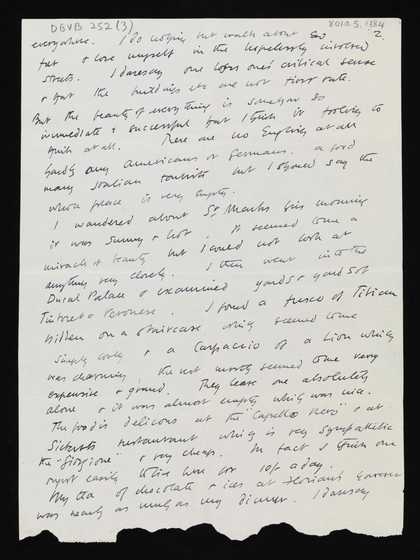 DBVB 252 (3)
8010.5.1384
2.
everywhere. I do nothing but walk about
feet & lose myself in the hopelessly involved
streets. I daresay one loses one's critical sense
& that the buildings etc are not first rate.
But the beauty of everything is somehow so
immediate & successful that I think it foolish to
think at all. There are no English at all
hardly any Americans or Germans. a good
many Italian tourists but I should say the
whole place is very empty.
I wandered about St Marks this morning
it was sunny & hot. It seemed to me a
miracle of beauty but I could not look at
anything very closely. I then went into the
Ducal Palace & examined yards & yards of
Tintoret & Veronese. I found a fresco of Titian
hidden on a staircase which seemed to me
simply lovely & a Carpaccio of a Lion which
was charming the rest mostly seemed to me very
expensive & grand. They leave one absolutely
alone & it was almost empty which was nice.
The food is delicious at the "Capello Nero" & at
Sickerts restaurant which is very sympathetic
the "Giorgione" & very cheap. In fact I think one
might easily live here for 10/- a day.
My tea of chocolate & ices at Florians
was nearly as much as my dinner. I daresay